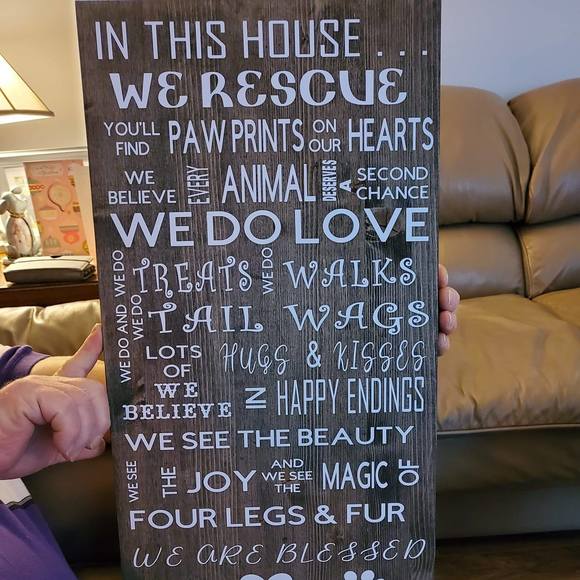 IN THIS HOUSE . . .
WE RESCUE
YOU'LL FIND PAW PRINTS ON OUR HEARTS
WE BELIEVE EVERY ANIMAL DESERVES A SECOND CHANCE
WE DO LOVE
WE DO AND WE DO TREATS WE DO WALKS
WE DO TAIL WAGS
LOTS OF HUGS & KISSES
WE BELIEVE IN HAPPY ENDINGS
WE SEE THE BEAUTY
WE SEE THE JOY AND WE SEE THE MAGIC OF
FOUR LEGS & FUR
WE ARE BLESSED